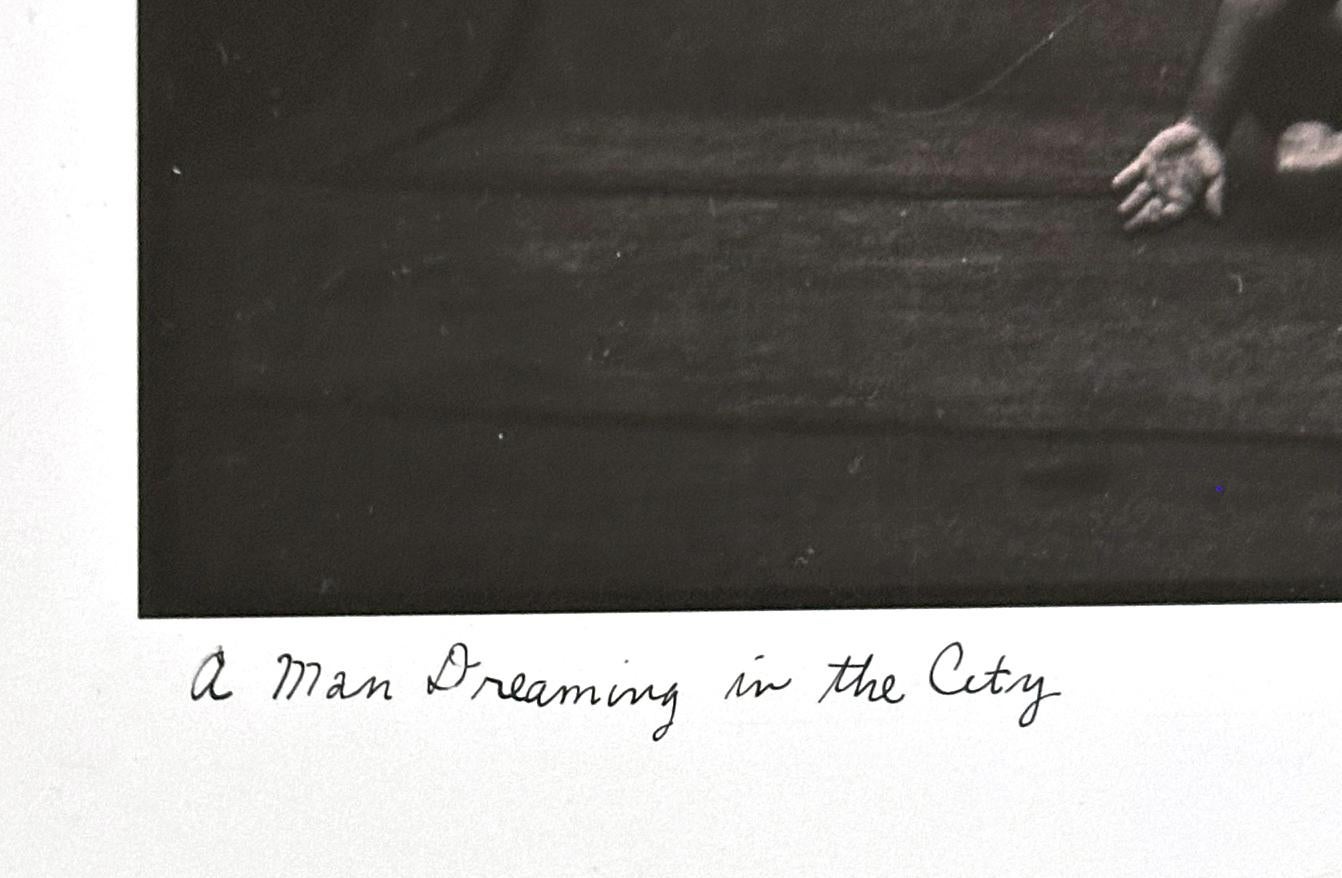 A Man Dreaming in the City